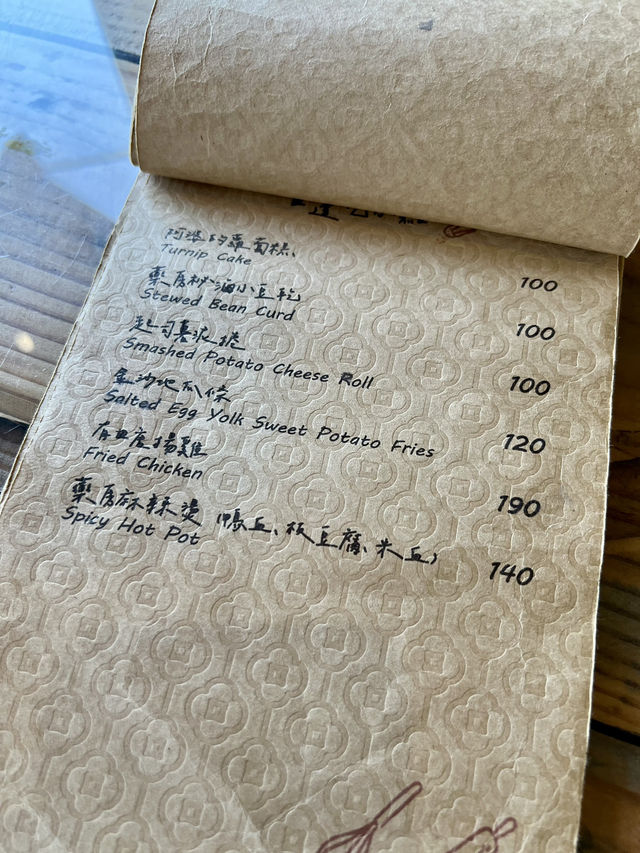 阿婆ㄟ蘿蔔糕
Turnip Cake 100
藥房秘滷小豆乾
Stewed Bean Curd 100
起司薯泥捲
Smashed Potato Cheese Roll 100
金沙地瓜條
Salted Egg Yolk Sweet Potato Fries 120
唐揚雞
Fried Chicken 190
藥房麻辣燙(鴨血、板豆腐、米血)
Spicy Hot Pot 140